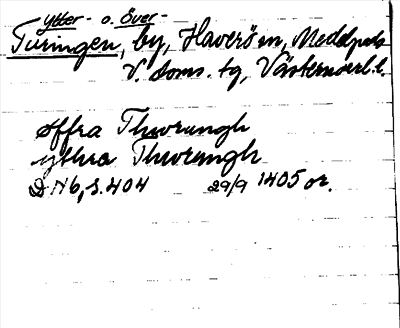 Ytter- o. Över-
Turingen, by, Haverö sn, Medelpads
V. doms. tg, Västernorrl. l.
øffra Thworungh
ythra Thworungh
DN 6, s. 404 29/9 1405 or.